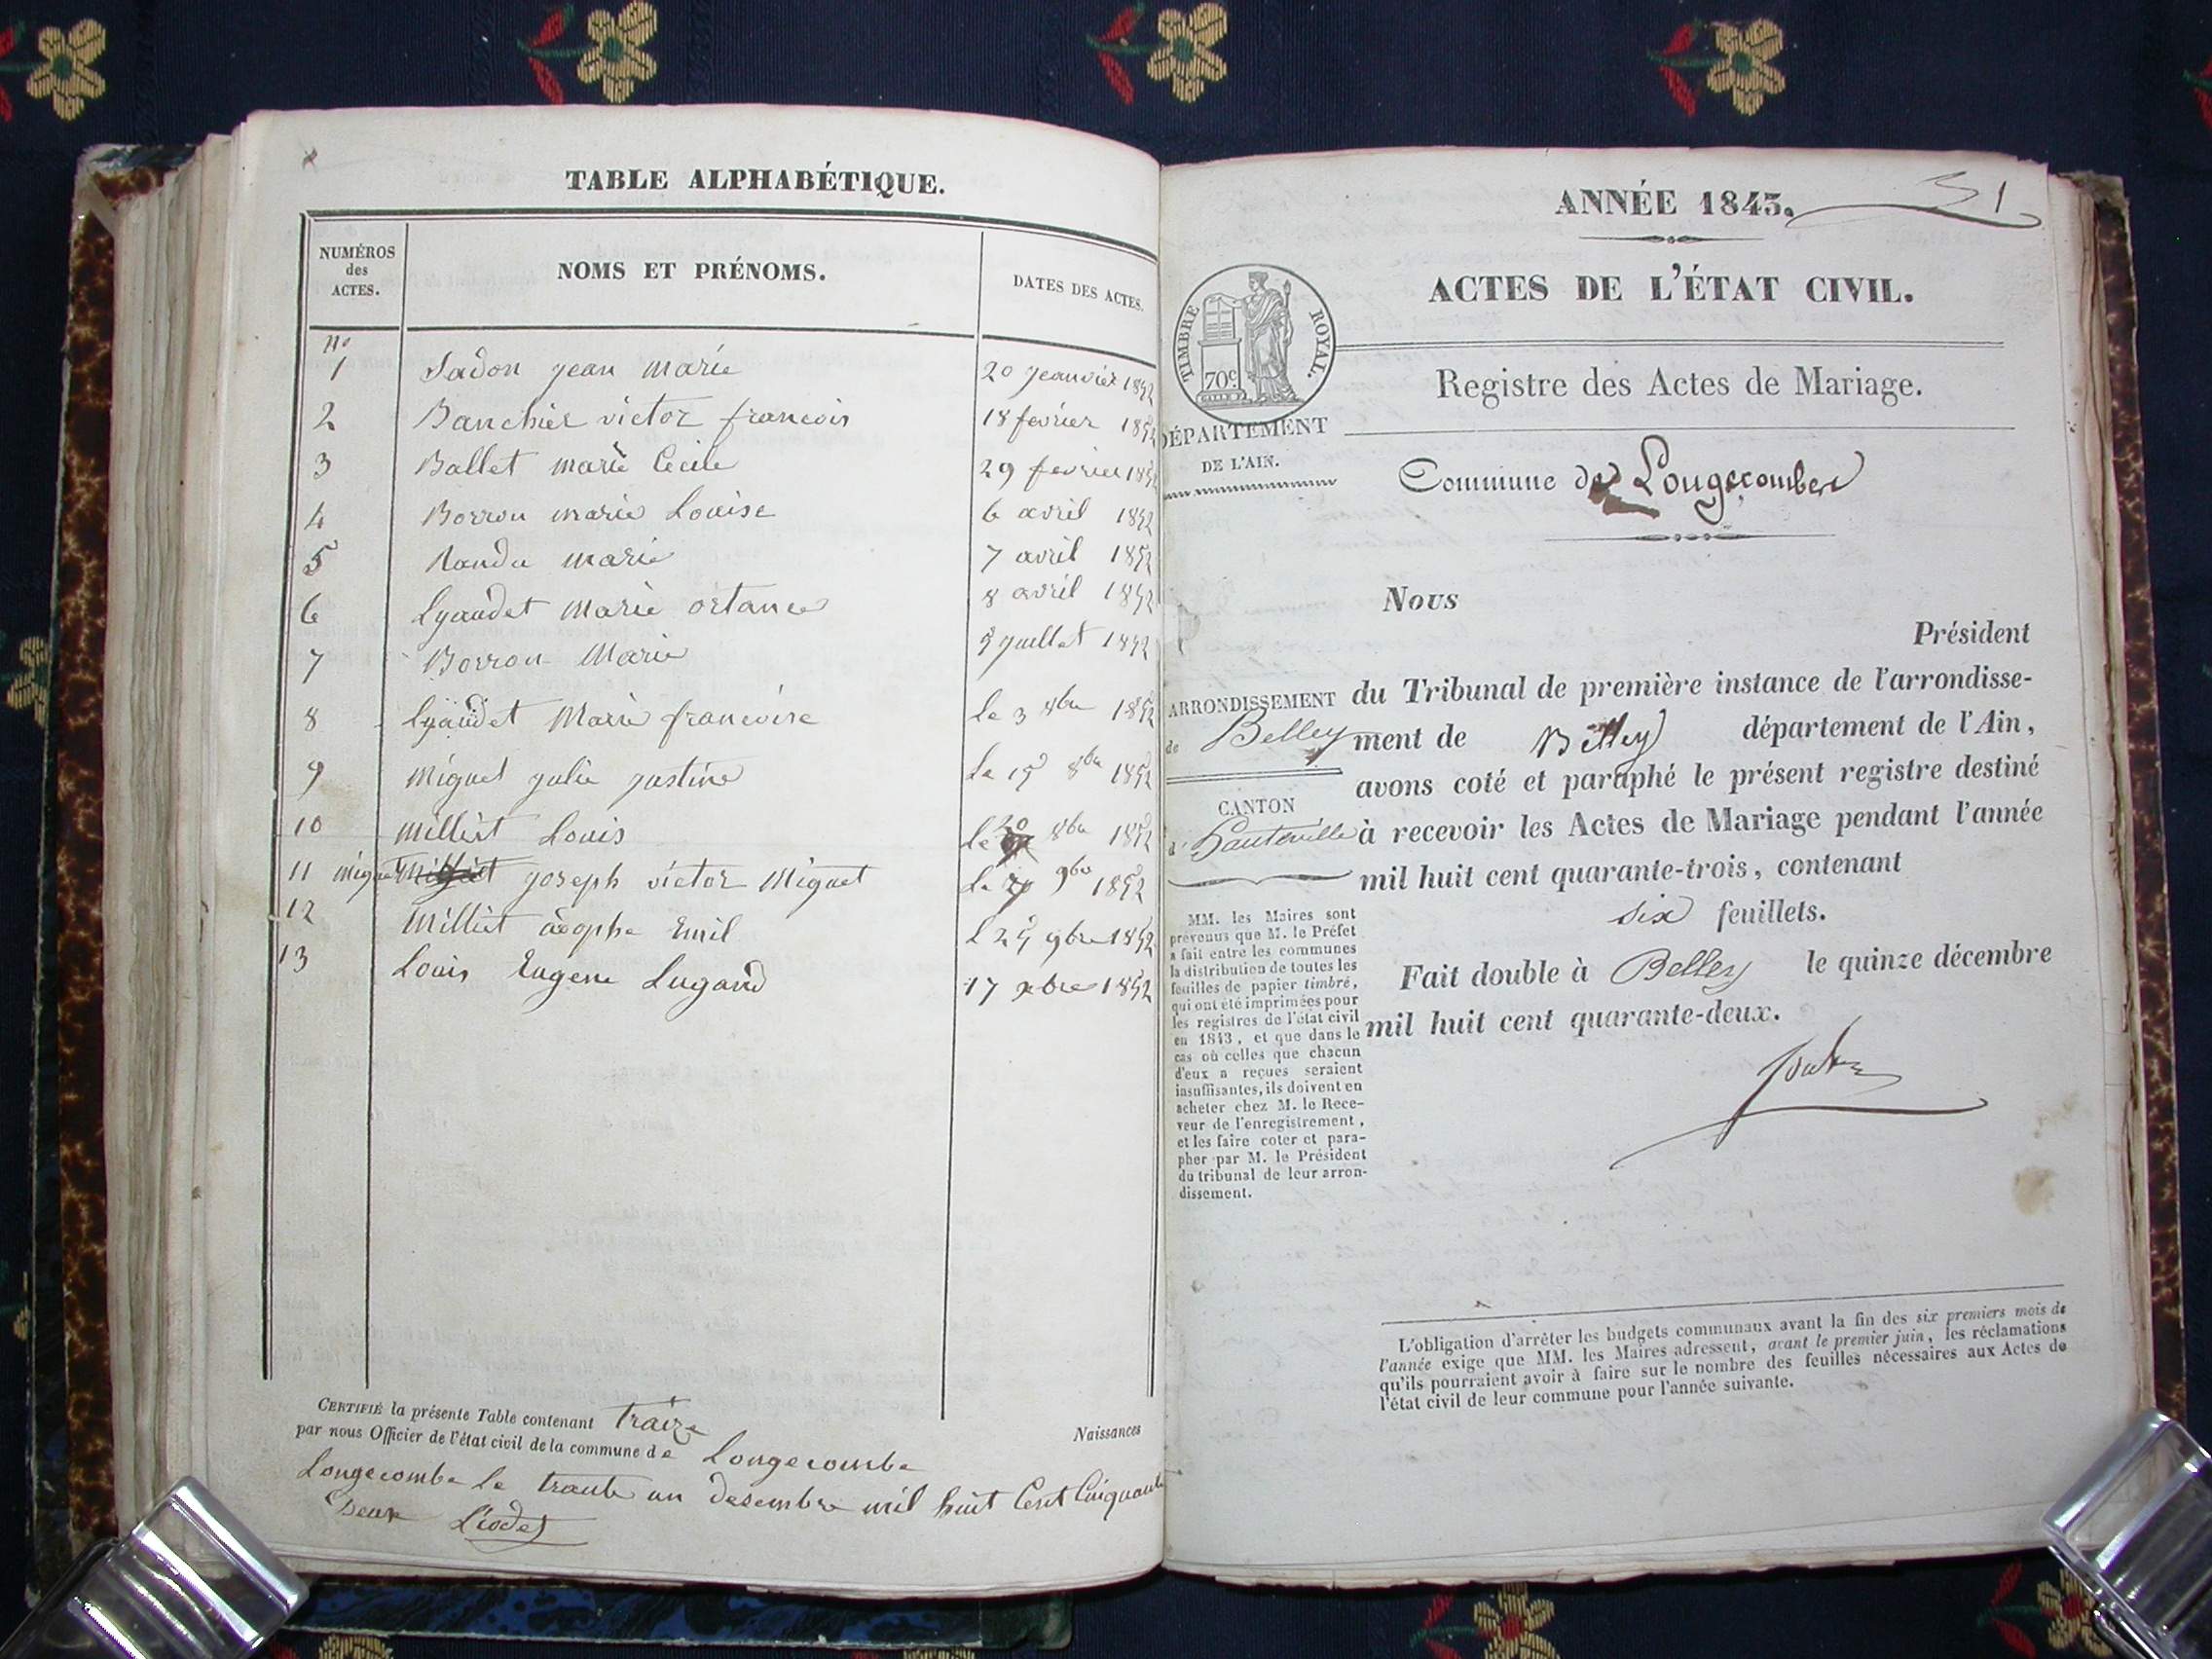 TABLE ALPHABÉTIQUE.
NUMÉROS
des
ACTES.
NOMS ET PRÉNOMS.
DATES DES ACTES.
No
1 Jean Marie 20 Jeanvier 1852
2 Banchier victor francois 18 fevrier 1852
3 Ballet marie Cecile 29 fevrier 1852
4 Borron marie Louise 6 avril 1852
5 marie 7 avril 1852
6 Lyaudet Marie ortance 8 avril 1852
7 Borron Marie juillet 1852
8 Lyaudet Marie francoise Le 3 8bre 1852
9 Miguet julie justine Le 15 8bre 1852
10 Milliet Louis Le 20 8bre 1852
11 miguet joseph victor Miguet Le 9bre 1852
12 Milliet Emil L 25 9bre 1852
13 Louis Eugene Lugand 17 xbre 1852
CERTIFIÉ la présente Table contenant traize
Naissances
par nous Officier de l'état civil de la commune de Longecombe
Longecombe le trante un desembre mil huit Cent Cinquante
Deux Liodet
ANNÉE 1843.
31
ACTES DE L'ÉTAT CIVIL.
TIMBRE ROYAL.
70c
Registre des Actes de Mariage.
DÉPARTEMENT
DE L'AIN.
Commune de Longecombe
Nous
Président
ARRONDISSEMENT
de Belley
CANTON
d'Hauteville
du Tribunal de première instance de l'arrondisse-
ment de Belley département de l'Ain,
avons coté et paraphé le présent registre destiné
à recevoir les Actes de Mariage pendant l'année
mil huit cent quarante-trois, contenant
six feuillets.
Fait double à Belley le quinze décembre
mil huit cent quarante-deux.
MM. les Maires sont
prévenus que M. le Préfet
a fait entre les communes
la distribution de toutes les
feuilles de papier timbré,
qui ont été imprimées pour
les registres de l'état civil
en 1843, et que dans le
cas où celles que chacun
d'eux a reçues seraient
insuffisantes, ils doivent en
acheter chez M. le Rece-
veur de l'enregistrement,
et les faire coter et para-
pher par M. le Président
du tribunal de leur arron-
dissement.
L'obligation d'arrêter les budgets communaux avant la fin des six premiers mois de
l'année exige que MM. les Maires adressent, avant le premier juin, les réclamations
qu'ils pourraient avoir à faire sur le nombre des feuilles nécessaires aux Actes de
l'état civil de leur commune pour l'année suivante.